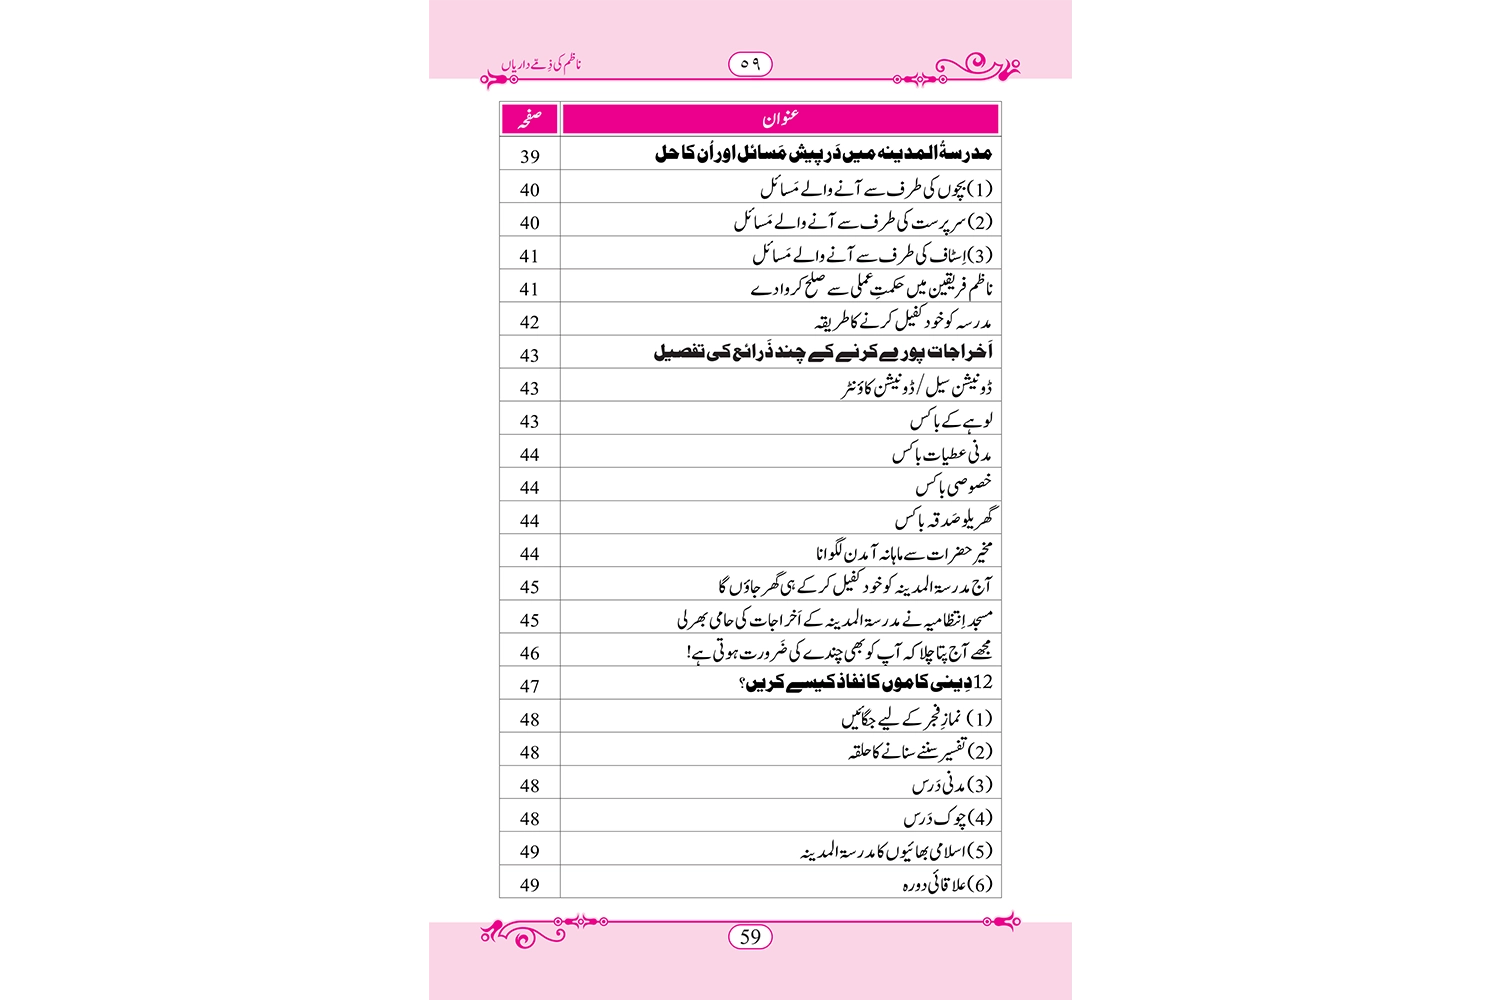 ناظم کی ذِمّے داریاں
۵۹
عنوان صفحہ
مدرسۃُ المدینہ میں دَرپیش مَسائل اور اُن کا حل 39
(1) بچوں کی طرف سے آنے والے مَسائل 40
(2) سرپرست کی طرف سے آنے والے مَسائل 40
(3) اِسٹاف کی طرف سے آنے والے مَسائل 41
ناظم فریقین میں حکمتِ عملی سے صلح کروا دے 41
مدرسہ کو خود کفیل کرنے کا طریقہ 42
اَخراجات پورے کرنے کے چند ذَرائع کی تفصیل 43
ڈونیشن سیل / ڈونیشن کاؤنٹر 43
لوہے کے باکس 43
مدنی عطیات باکس 44
خصوصی باکس 44
گھریلو صَدقہ باکس 44
مخیر حضرات سے ماہانہ آمدن لگوانا 44
آج مدرسۃ المدینہ کو خود کفیل کر کے ہی گھر جاؤں گا 45
مسجد اِنتظامیہ نے مدرسۃ المدینہ کے اَخراجات کی حامی بھر لی 45
مجھے آج پتا چلا کہ آپ کو بھی چندے کی ضَرورت ہوتی ہے! 46
12 دِینی کاموں کا نفاذ کیسے کریں؟ 47
(1) نمازِ فجر کے لیے جگائیں 48
(2) تفسیر سننے سنانے کا حلقہ 48
(3) مدنی دَرس 48
(4) چوک دَرس 48
(5) اسلامی بھائیوں کا مدرسۃ المدینہ 49
(6) علاقائی دورہ 49
59